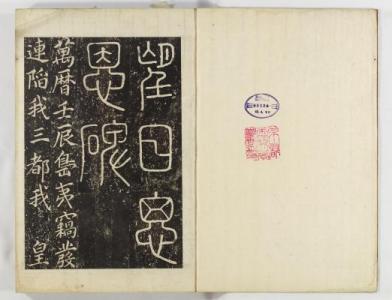 望日思
恩碑
萬暦壬辰島夷竊發
連陷我三都我 皇